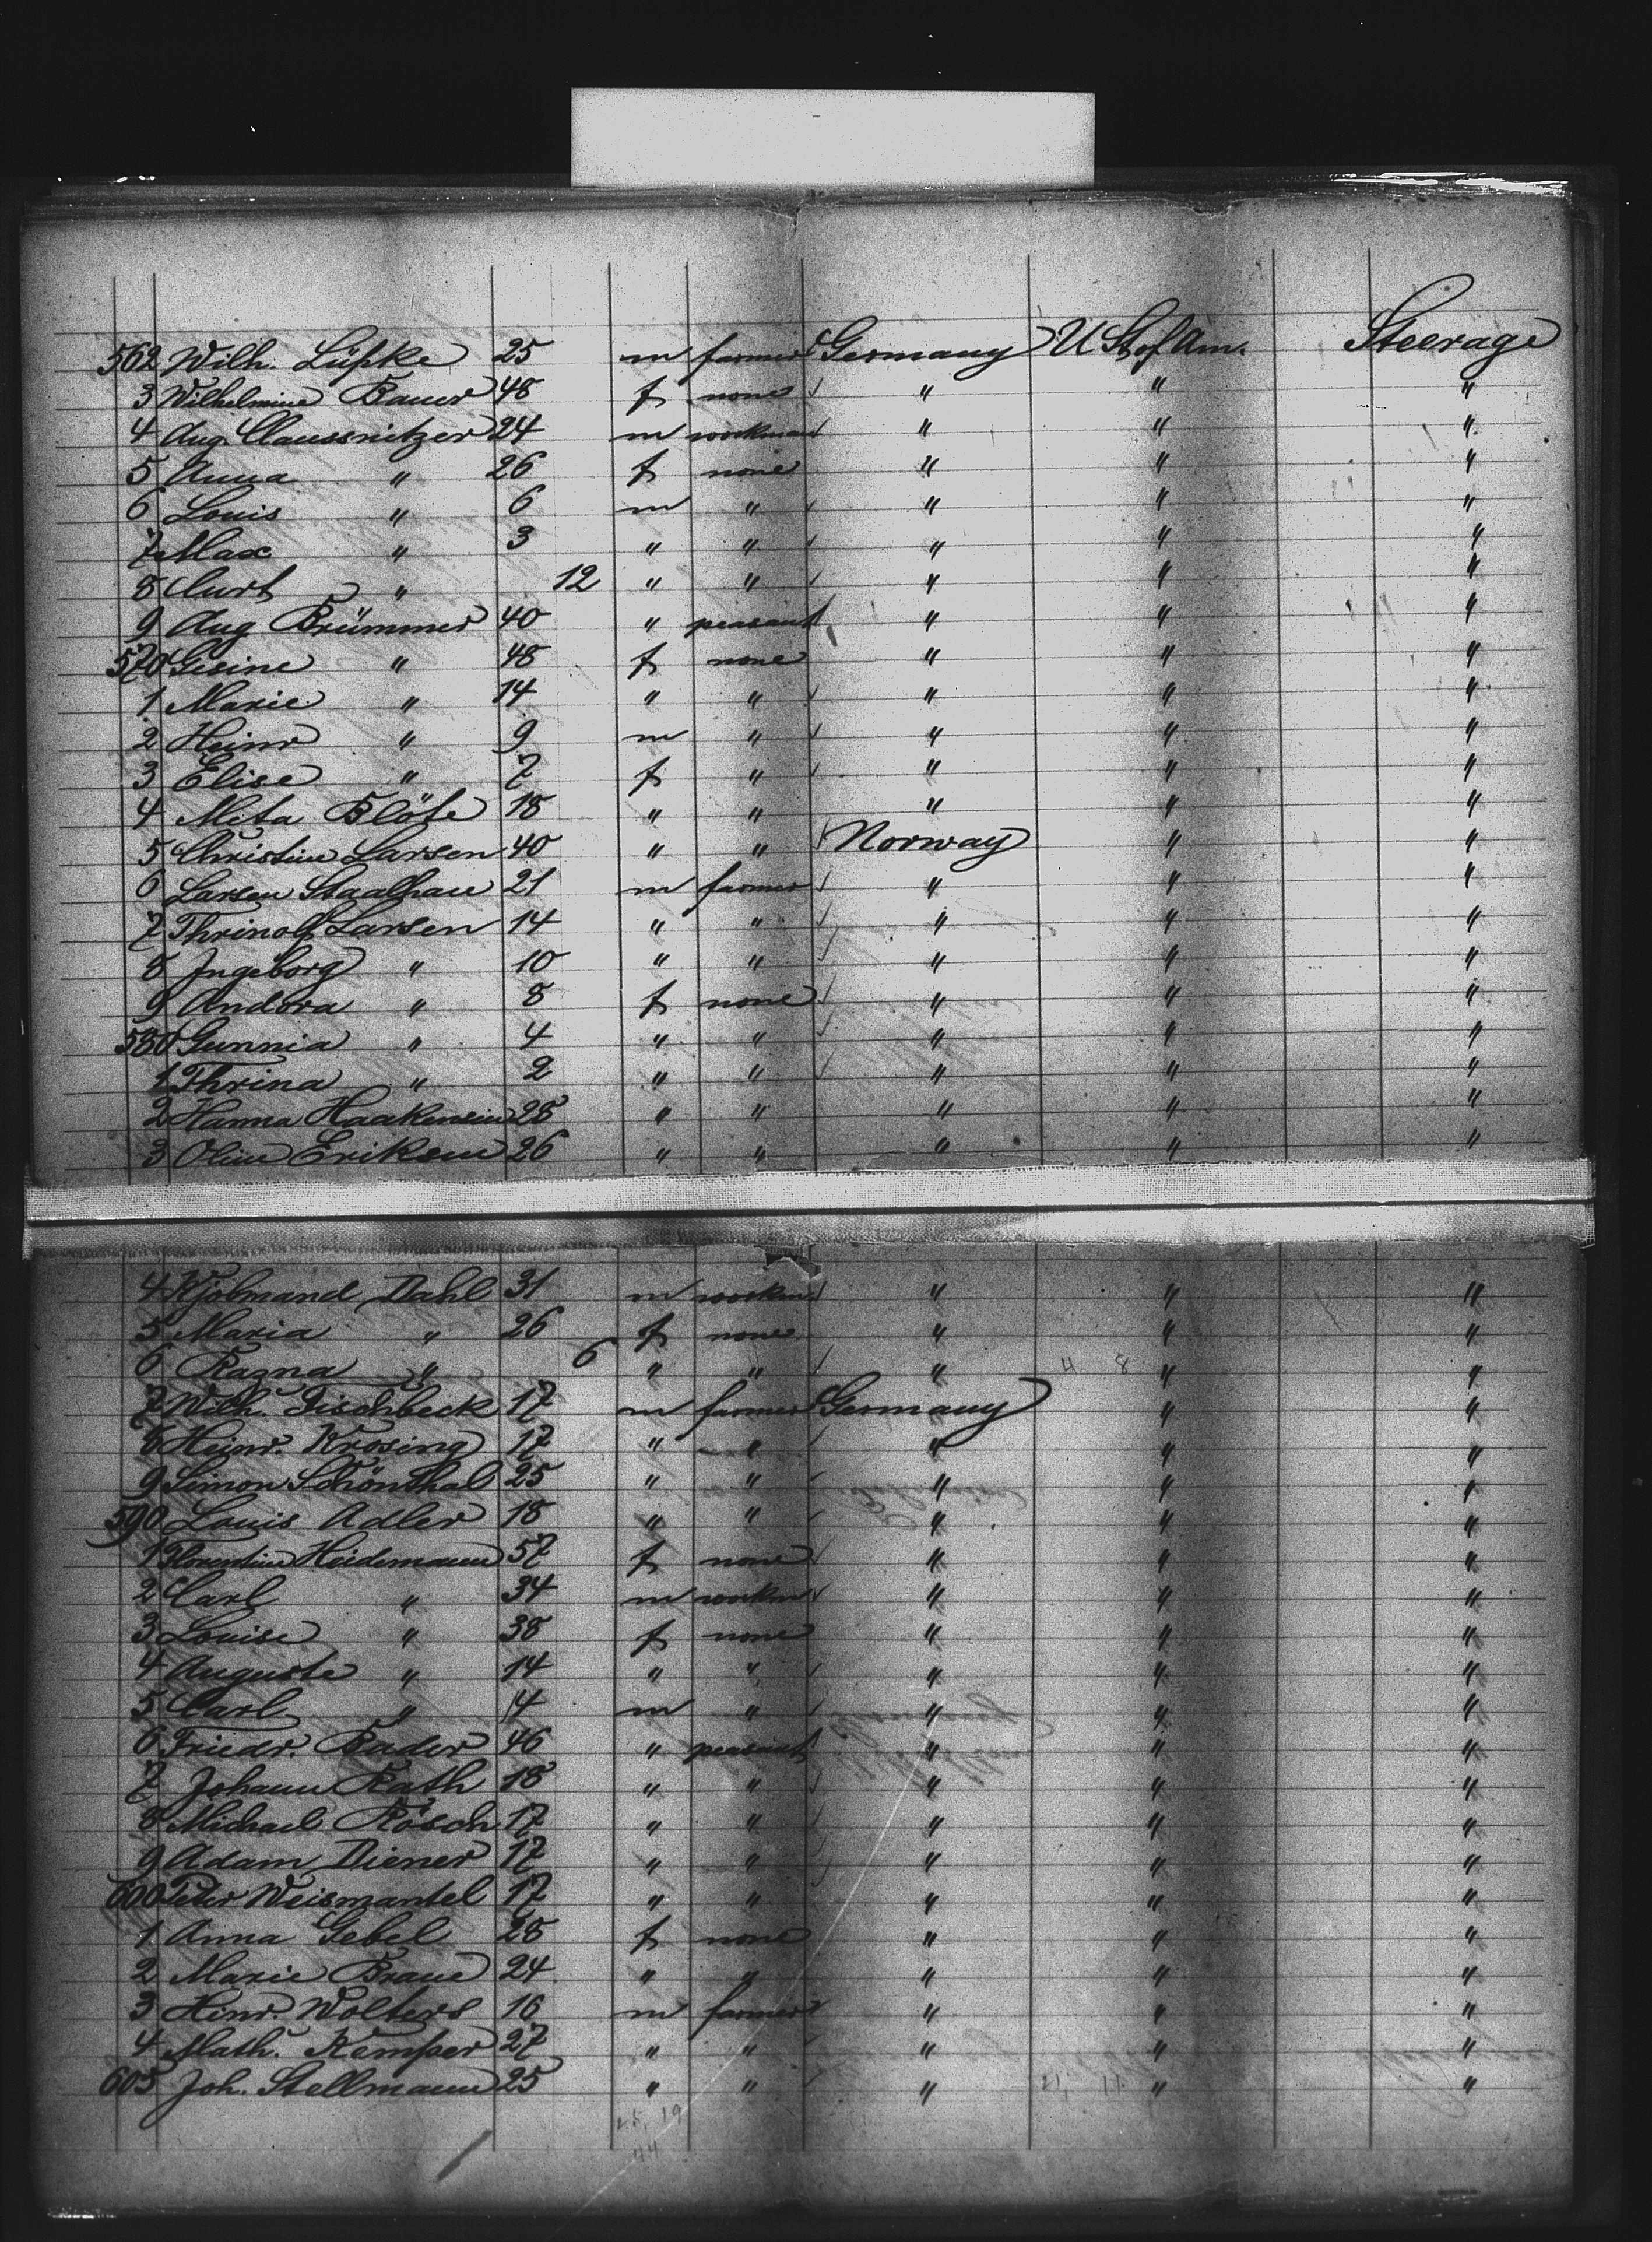 562 Wilh. Lüpke 25 m farmer Germany U St of Am. Steerage
3 Wilhelmine Bauer 48 f none " " "
4 Aug. Claussnitzer 24 m workman " " "
5 Anna " 26 f none " " "
6 Louis " 6 m " " " "
7 Max " 3 " " " " "
8 Curt " 12 " " " " "
9 Aug Brümmer 40 " peasant " " "
570 Gesine " 48 f none " " "
1 Marie " 14 " " " " "
2 Heinr " 9 m " " " "
3 Elise " 7 f " " " "
4 Meta Blöte 18 " " " " "
5 Christine Larsen 40 " " Norway " "
6 Larsen Staalhane 21 m farmer " " "
7 Thrinolf Larsen 14 " " " " "
8 Ingeborg " 10 " " " " "
9 Andora " 8 f none " " "
580 Gunnia " 4 " " " " "
1 Thrina " 2 " " " " "
2 Hanna Haakensen 28 " " " " "
3 Oline Eriksen 26 " " " " "
4 Kjolmand Dahl 31 m workm " " "
5 Maria " 26 f none " " "
6 Ragna " 6 " " " " "
7 Wilh. Dischbeck 17 m farmer Germany " "
8 Heinr. Krosing 17 " " " " "
9 Simon Schönthal 25 " " " " "
590 Louis Adler 18 " " " " "
1 Florentine Heidemann 57 f none " " "
2 Carl " 34 m workm " " "
3 Louise " 38 f none " " "
4 Auguste " 14 " " " " "
5 Carl " 14 m " " " "
6 Friedr. Bader 46 " peasant " " "
7 Johann Rath 18 " " " " "
8 Michael Rösch 17 " " " " "
9 Adam Diener 17 " " " " "
600 Peter Weismantel 17 " " " " "
1 Anna Gebel 28 f none " " "
2 Marie Braue 24 " " " " "
3 Hinr. Wolters 16 m farmer " " "
4 Math. Kemper 27 " " " " "
605 Joh. Stellmann 25 " " " " "